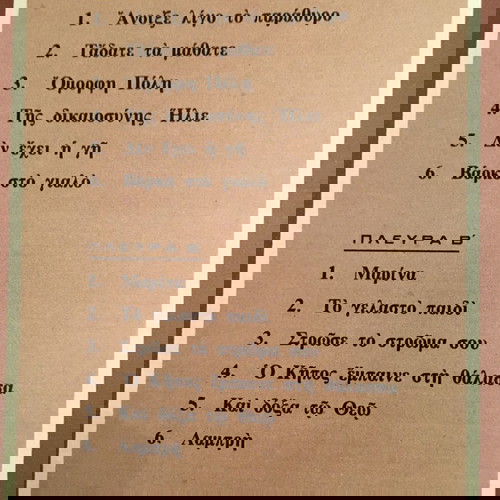 1. Ἄνοιξε λίγο τὸ παράθυρο
2. Τἄδατε τὰ μάθατε
3. Ὄμορφη Πόλη
4. Τῆς δικαιοσύνης Ἥλιε
5. Δὲν ἔχει ἡ γῆ
6. Βάρκα στὸ γιαλὸ
ΠΛΕΥΡΑ Β΄
1. Μαρίνα
2. Τὸ γελαστὸ παιδὶ
3. Στρῶσε τὸ στρῶμα σου
4. Ὁ Κῆπος ἔμπαινε στὴ θάλασσα
5. Καὶ δόξα τῷ Θεῷ
6. Λαμπρὴ